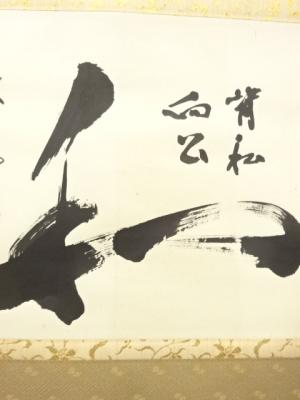 背私
向公
和